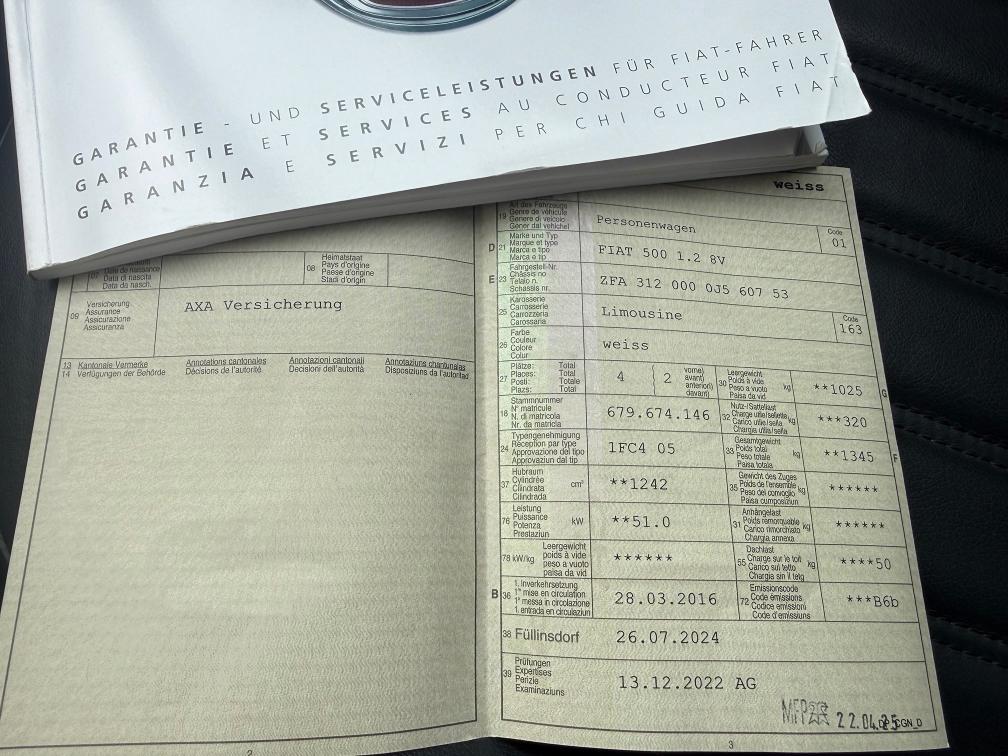 GARANTIE - UND SERVICELEISTUNGEN FÜR FIAT-FAHRER
GARANTIE ET SERVICES AU CONDUCTEUR FIAT
GARANZIA E SERVIZI PER CHI GUIDA FIAT
Data di nascita
Data da nasch.
08 Heimatstaat
Pays d'origine
Paese d'origine
Stadi d'origin
09 Versicherung
Assurance
Assicurazione
Assicuranza
AXA Versicherung
13 Kantonale Vermerke Annotations cantonales Annotazioni cantonali Annotaziuns chantunalas
14 Verfügungen der Behörde Décisions de l'autorité Decisioni dell'autorità Disposiziuns da l'autoritad
2
weiss
19 Art des Fahrzeugs
Genre de véhicule
Genere di veicolo
Gener dal vehichel
Personenwagen
Code
01
D 21 Marke und Typ
Marque et type
Marca e tipo
Marca e tip
FIAT 500 1.2 8V
E 23 Fahrgestell-Nr.
Châssis no
Telaio n.
Schassis nr.
ZFA 312 000 0J5 607 53
25 Karosserie
Carrosserie
Carrozzeria
Carossaria
Limousine
Code
163
26 Farbe
Couleur
Colore
Colur
weiss
27 Plätze: Total
Places: Total
Posti: Totale
Plazs: Total
4
2
vorne)
avant)
anteriori)
davant)
30 Leergewicht
Poids à vide
Peso a vuoto
Paisa da vid
kg
**1025
G
18 Stammnummer
N° matricule
N. di matricola
Nr. da matricla
679.674.146
32 Nutz-/Sattellast
Charge utile/sellette
Carico utile/sella
Chargia utila/sella
kg
***320
24 Typengenehmigung
Réception par type
Approvazione del tipo
Approvaziun dal tip
1FC4 05
33 Gesamtgewicht
Poids total
Peso totale
Paisa totala
kg
**1345
F
37 Hubraum
Cylindrée
Cilindrata
Cilindrada
cm³
**1242
35 Gewicht des Zuges
Poids de l'ensemble
Peso del convoglio
Paisa cumposiziun
kg
******
76 Leistung
Puissance
Potenza
Prestaziun
kW
**51.0
31 Anhängelast
Poids remorquable
Carico rimorchiato
Chargia annexa
kg
******
78 kW/kg Leergewicht
poids à vide
peso a vuoto
paisa da vid
******
55 Dachlast
Charge sur le toit
Carico sul tetto
Chargia sin il tetg
kg
****50
B 36 1. Inverkehrsetzung
1re mise en circulation
1a messa in circolazione
1. entrada en circulaziun
28.03.2016
72 Emissionscode
Code émissions
Codice emissioni
Code d'emissiuns
***B6b
38 Füllinsdorf
26.07.2024
39 Prüfungen
Expertises
Perizie
Examinaziuns
13.12.2022 AG
22.04.25
CGN_D
3